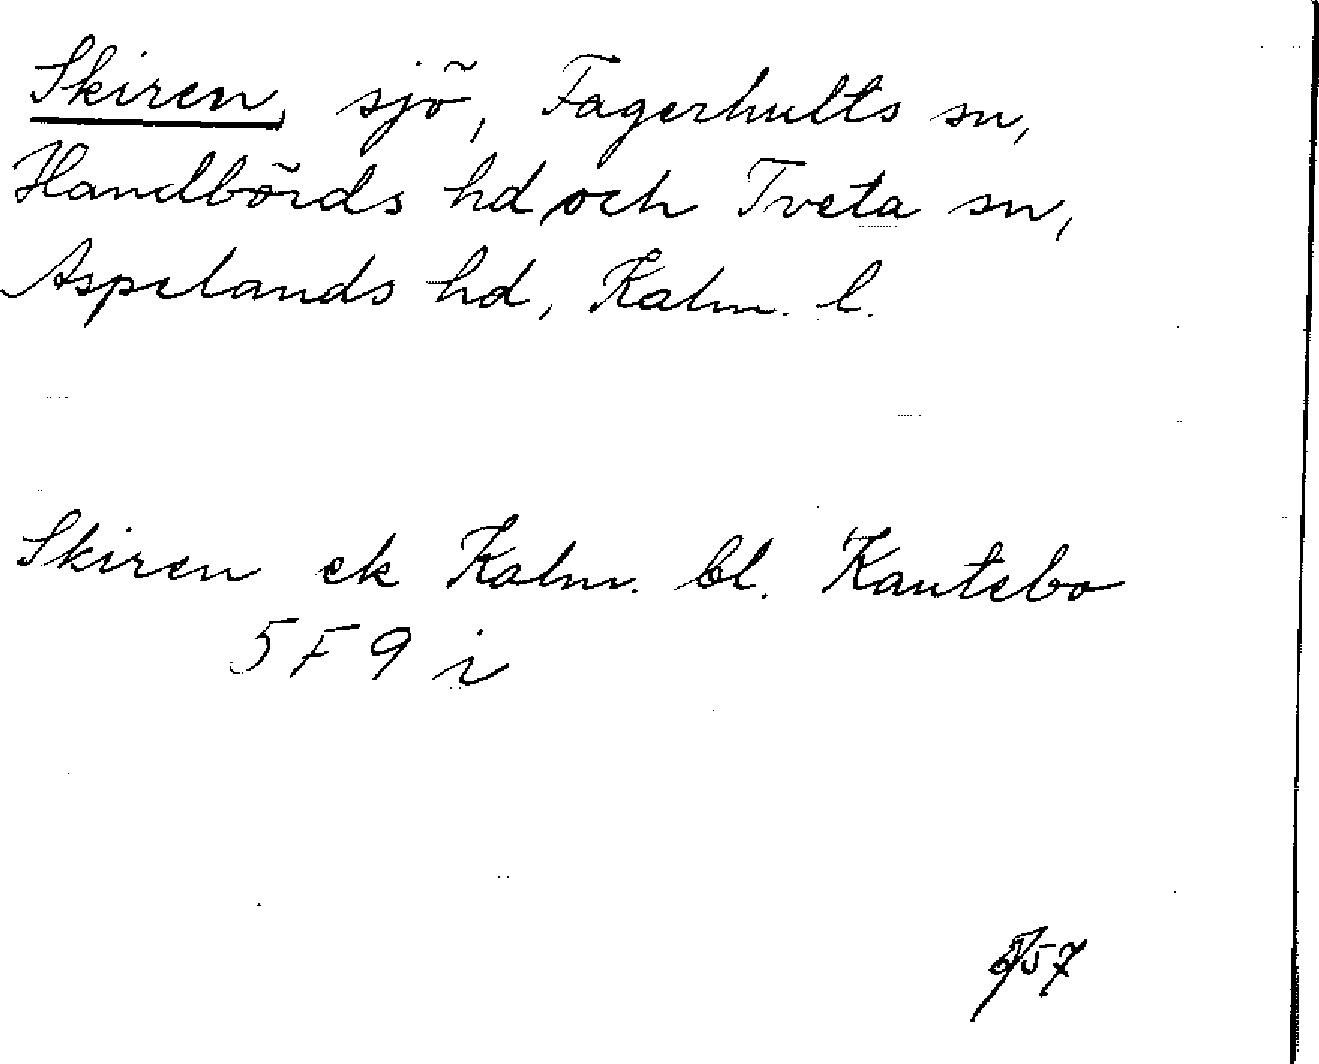 Skiren, sjö, Fagerhults sn,
Handbörds hd, och Tveta sn,
Aspelands hd, Kalm. l.
Skiren ek Kalm. bl. Kantebo
5 F 9 i